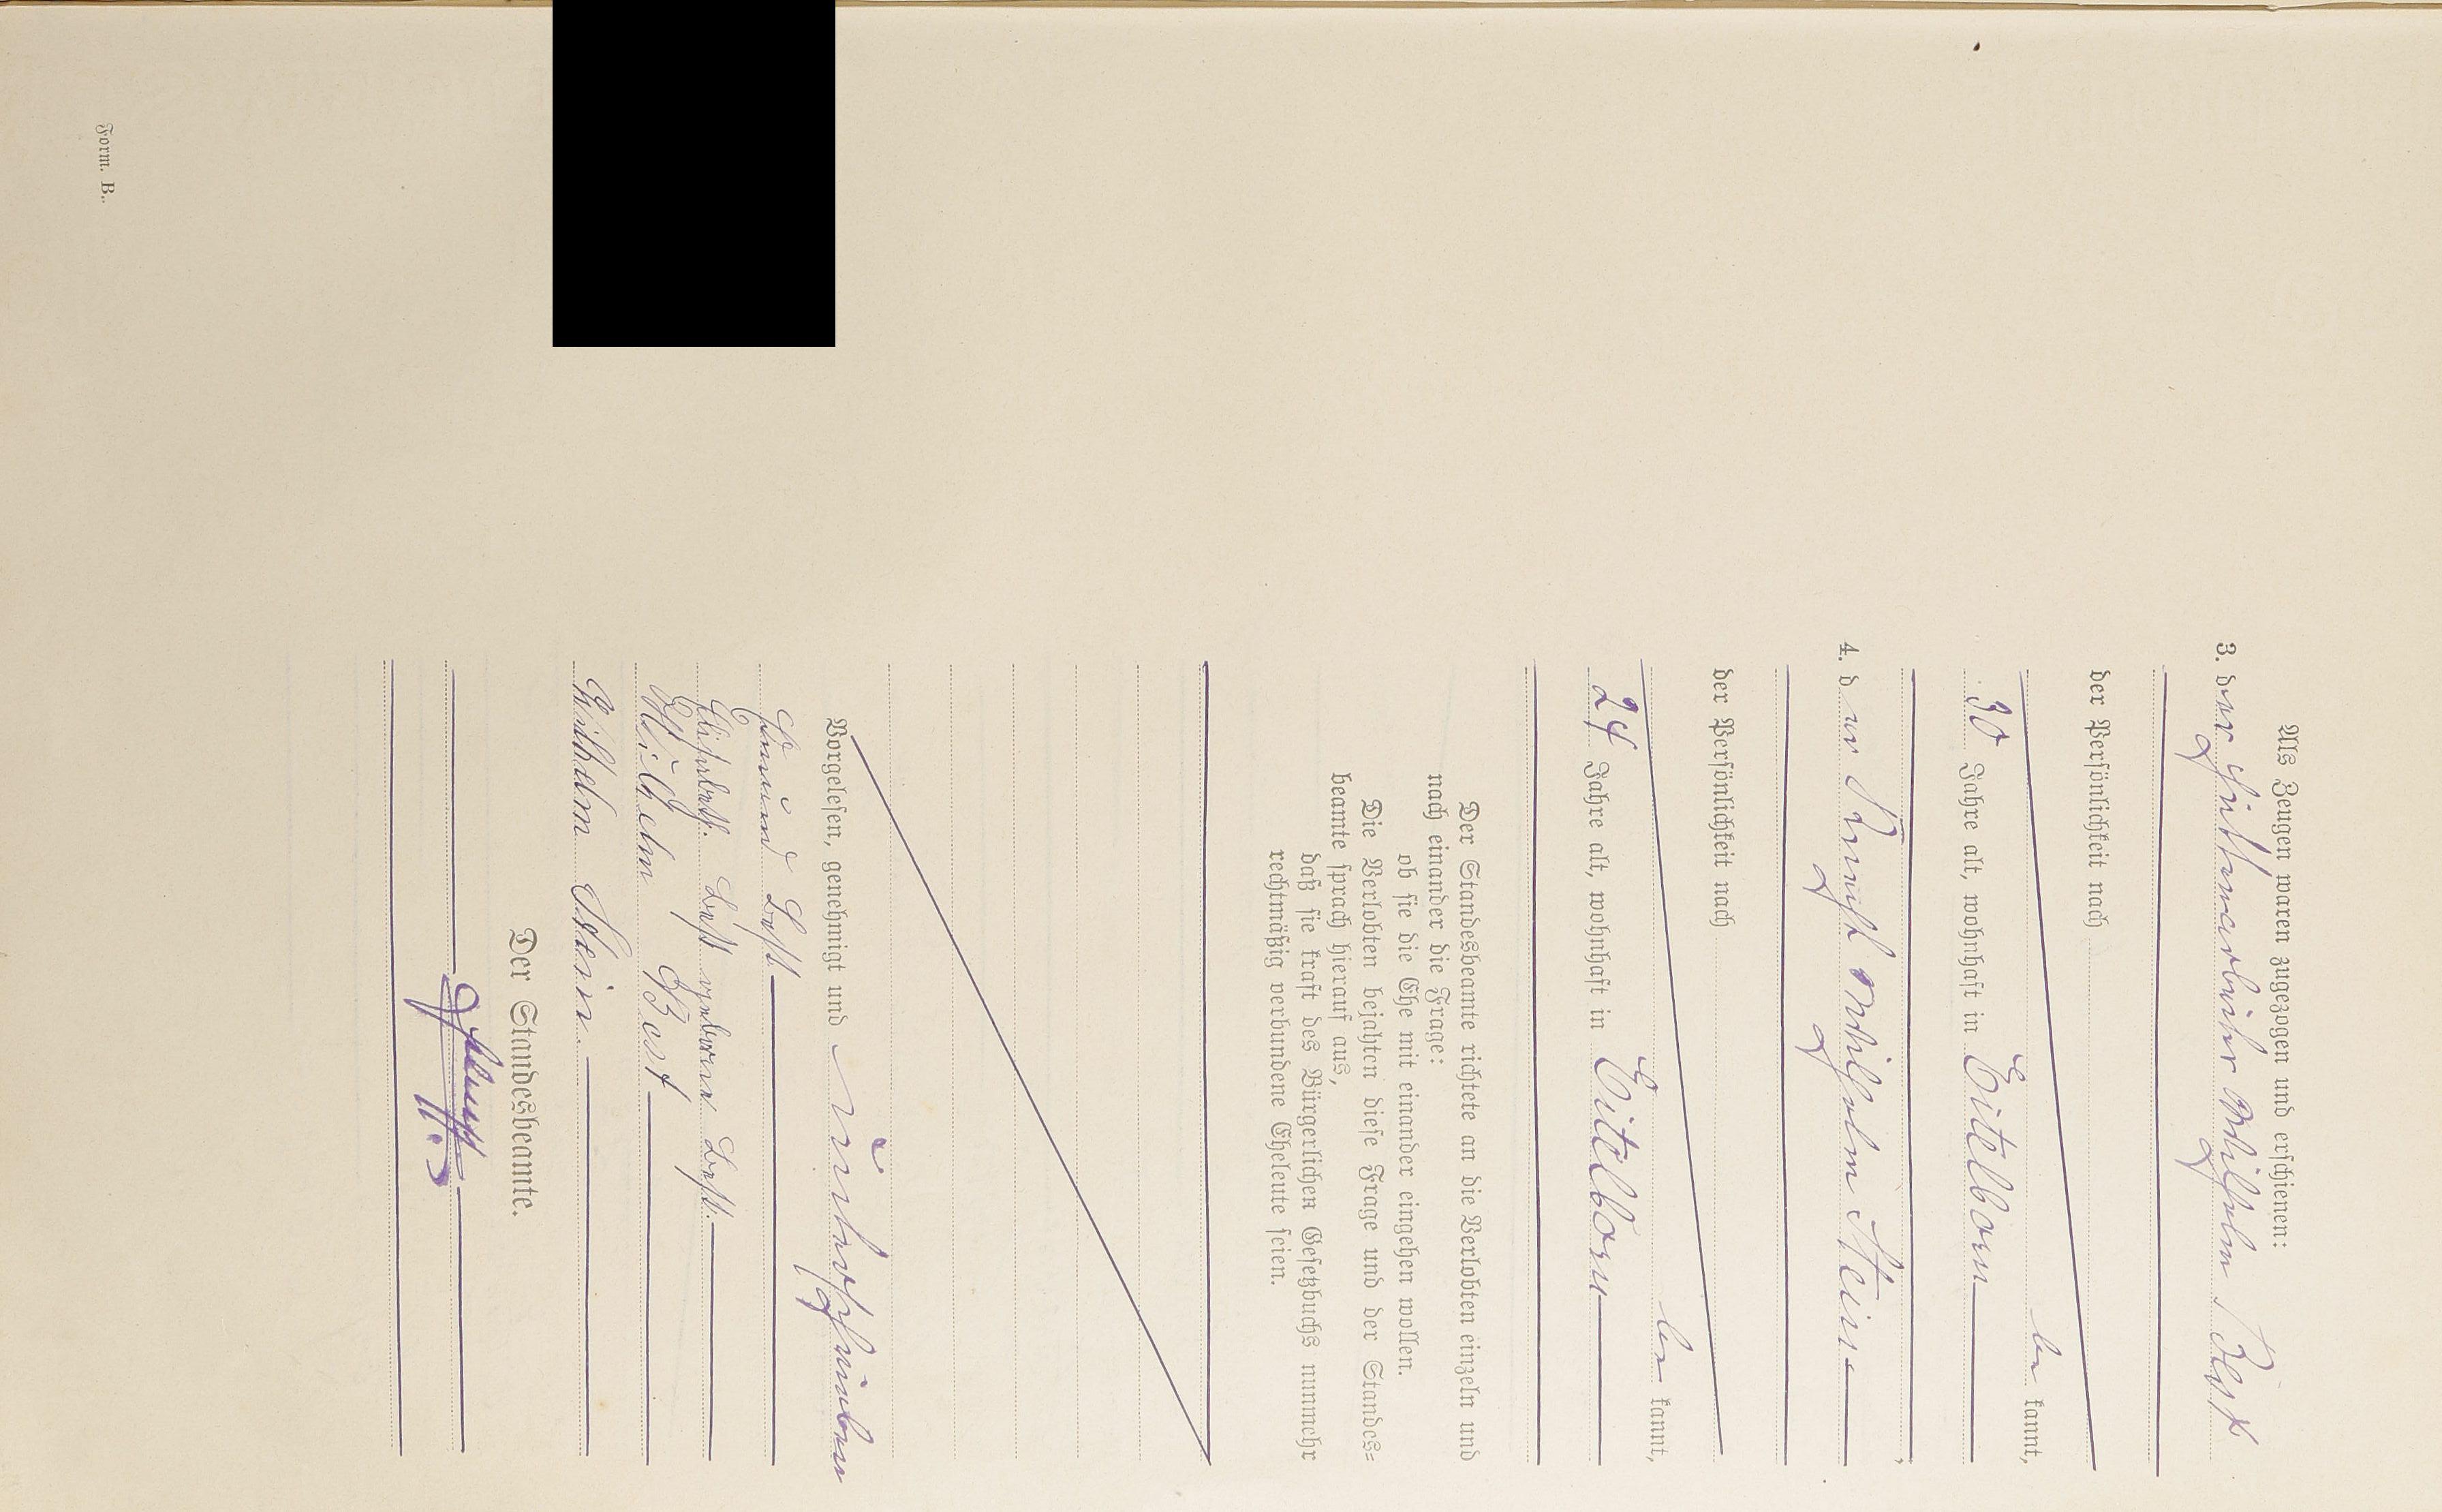 Als Zeugen waren zugezogen und erschienen:
3. der Hüttenarbeiter Wilhelm Best
der Persönlichkeit nach
be kannt,
30 Jahre alt, wohnhaft in Eitelborn
4. der Wilhelm Stein
der Persönlichkeit nach
be kannt,
24 Jahre alt, wohnhaft in Eitelborn
Der Standesbeamte richtete an die Verlobten einzeln und
nach einander die Frage:
ob sie die Ehe mit einander eingehen wollen.
Die Verlobten bejahten diese Frage und der Standes=
beamte sprach hierauf aus,
daß sie kraft des Bürgerlichen Gesetzbuchs nunmehr
rechtmäßig verbundene Eheleute seien.
Vorgelesen, genehmigt und unterschrieben
Best.
Elisabeth Best geborene Best.
Wilhelm Best
Wilhelm Stein.
Der Standesbeamte.
Form. B.